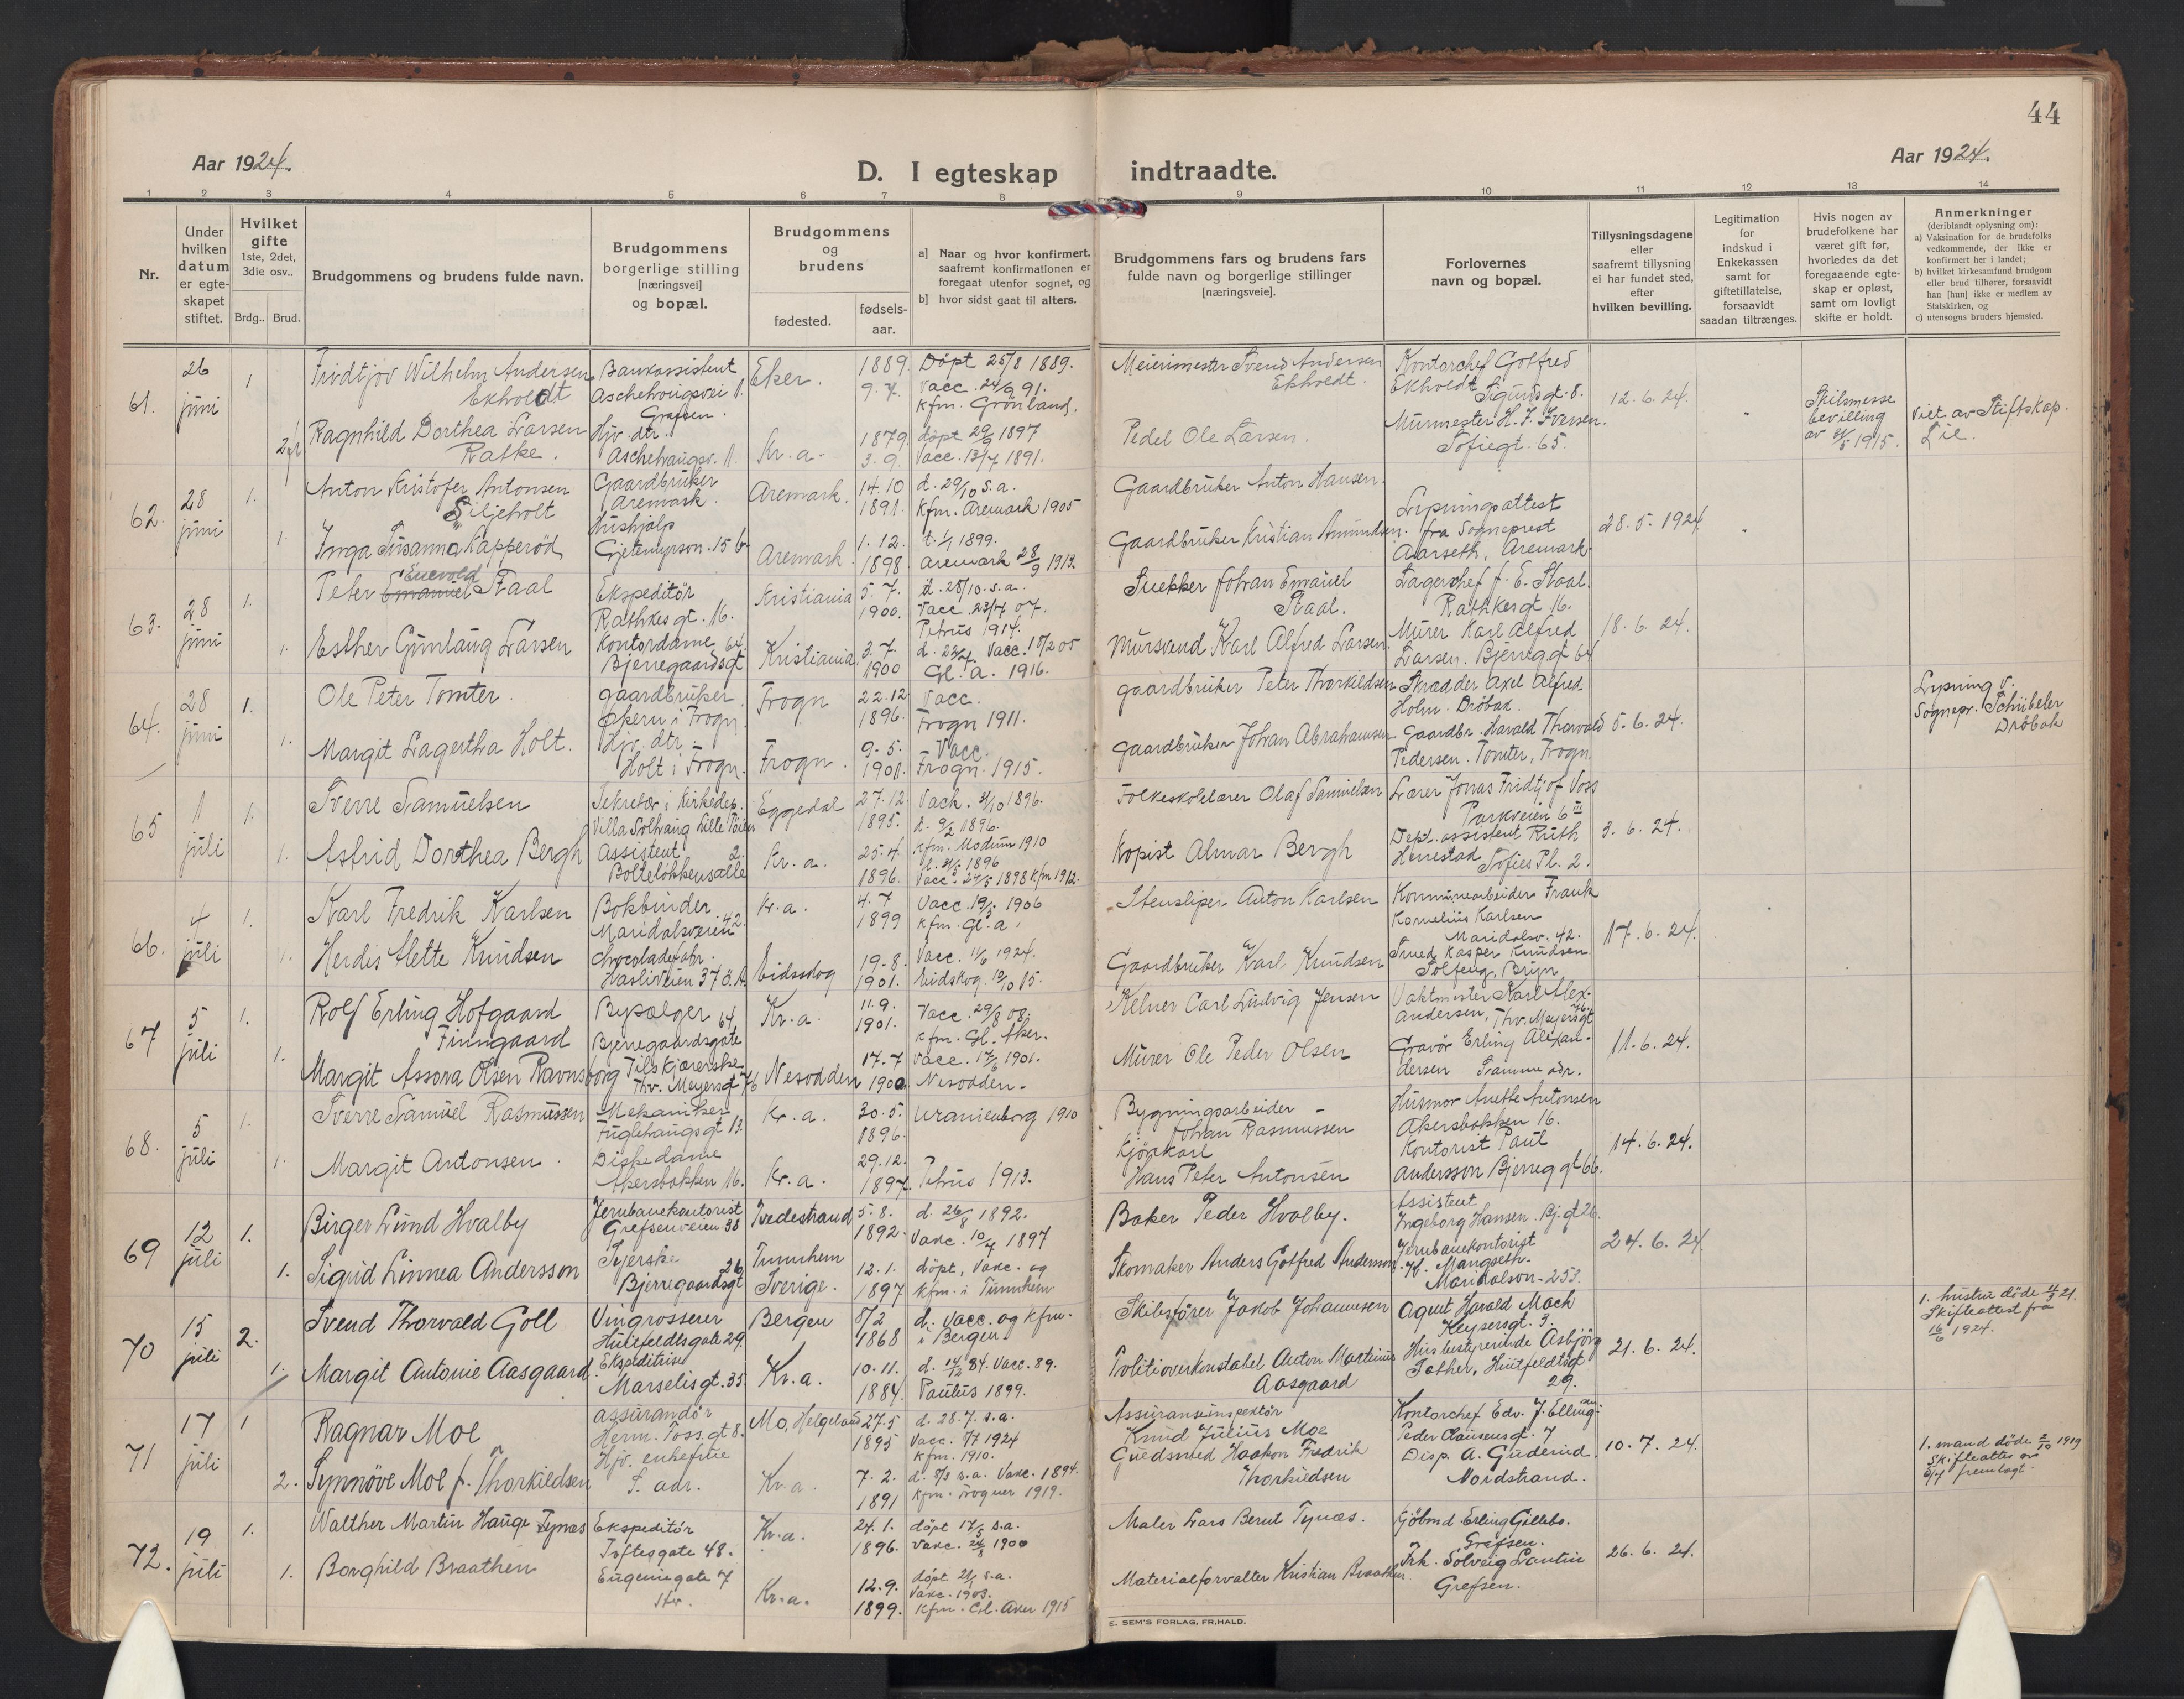 44
Aar 1924.
D. I egteskap indtraadte.
Aar 1924.
1 2 3 4 5 6 7 8 9 10 11 12 13 14
Nr.
Under hvilken datum er egteskapet stiftet.
Hvilket gifte 1ste, 2det, 3die osv..
Brdg.. Brud.
Brudgommens og brudens fulde navn.
Brudgommens borgerlige stilling [næringsvei] og bopæl.
Brudgommens og brudens
fødested.
fødsels-aar.
a] Naar og hvor konfirmert, saafremt konfirmationen er foregaat utenfor sognet, og
b] hvor sidst gaat til alters.
Brudgommens fars og brudens fars fulde navn og borgerlige stillinger [næringsveie].
Forlovernes navn og bopæl.
Tillysningsdagene eller saafremt tillysning ei har fundet sted, efter hvilken bevilling.
Legitimation for indskud i Enkekassen samt for giftetillatelse, forsaavidt saadan tiltrænges.
Hvis nogen av brudefolkene har været gift før, hvorledes da det foregaaende egteskap er opløst, samt om lovligt skifte er holdt.
Anmerkninger (deriblandt oplysning om):
a) Vaksination for de brudefolks vedkommende, der ikke er konfirmert her i landet;
b) hvilket kirkesamfund brudgom eller brud tilhører, forsaavidt han [hun] ikke er medlem av Statskirken, og
c) utensogns bruders hjemsted.
61. 26 juni 1
Fridtjov Wilhelm Andersen Ekholdt
Bankassistent Aschehougsvei 11. Grefsen.
Eker. 1889. 9.7.
Døpt 25/8 1889. Vacc. 24/9 91. Kfm. Grønland.
Meierimester Svend Andersen Ekholdt.
Kontorchef Gotfred Ekholdt Sigurdsgt. 8.
12.6.24.
Skilsmesse bevilling av 1915.
Viet av Stiftskap. Lie.
Ragnhild Dorthea Larsen Ratke.
Hjv. dtr. Aschehougsv. 11.
Kr.a. 1879. 3.9.
døpt 1897 Vacc. 13/7 1891.
Pedel Ole Larsen.
Murmester H. J. Iversen. Sofiegt. 65.
62. 28 juni 1.
Anton Kristofer Antonsen Siljeholt
Gaardbruker Aremark.
Aremark. 14.10 1891.
d. 29/10 s.a. Kfm. Aremark 1905
Gaardbruker Anton Hansen.
Lysningsattest fra Sogneprest Aarseth, Aremark
28.5.1924
1. Inga Susanna Kapperød
Hushjælp Gjetemyrson. 15 b
Aremark 1.12. 1898.
d. 1/1 1899. Aremark 28/9 1913.
Gaardbruker Kristian Amundsen.
63. 28 juni 1.
Peter Emanuel Enevold Staal
Ekspeditør Rathkesgt. 16.
Kristiania 5.7. 1900.
d. 28/10. s.a. Vacc. 23/7 07. Petrus 1914.
Snekker Johan Emanuel Staal.
Lagerchef J. E. Staal. Rathkesgt 16.
18.6.24.
1. Esther Gunlaug Larsen
Kontordame Bjerregaardsgt 64.
Kristiania 3.7. 1900
Vacc. 18/2 05 Gl. a. 1916.
Mursvend Karl Alfred Larsen.
Murer Karl Alfred Larsen. Bjerreg.gt 64
64. 28 juni 1.
Ole Peter Tomter.
gaardbruker Økern i Frogn.
Frogn 22.12 1896.
Vacc. Frogn 1911.
gaardbruker Peter Thorkildsen
Skrædder Axel Alfred Holm. Drøbak.
5.6.24.
Lysning v. Sognepr. Schübeler Drøbak
1. Margit Lagertha Holt.
Hjv. dtr. Holt i Frogn.
Frogn. 9.5. 1901.
Vacc. Frogn. 1915.
gaardbruker Johan Abrahamsen
Gaardbr. Harald Thorvald Pedersen. Tomter, Frogn.
65 11 juli 1.
Sverre Samuelsen
Sekretær i Kirkedep. Villa Solhaug Lille Tøien
Eggedal 27.12. 1895.
Vack. 31/10 1896. d. 9/2 1896. Kfm. Modum 1910
Folkeskolelærer Olaf Samuelsen
Lærer Jonas Fridtjof Voss Parkveien 6 III
3.6.24.
1. Astrid Dorthea Bergh
Assistent Bolteløkkensalle 2.
Kr.a. 25.4. 1896.
1896 Vacc. 1898 Kfm 1912.
Kopist Almar Bergh
Dept. assistent Ruth Herrestad Sofies Pl. 2.
66. 4 juli 1.
Karl Fredrik Karlsen
Bokbinder Maridalsveien 42.
Kr.a. 4.7 1899
Vacc. 1906 Kfm. Gl. a.
Stensliper Anton Karlsen
Kommunearbeider Frank Kornelius Karlsen Maridalsv. 42.
17.6.24.
1. Herdis Mette Knudsen
Chocoladefabr. Hasleveien 37 Ø.A.
Eidsskog 19.8. 1901.
Vacc. 11/6 1924. Eidskog. 10/10 15.
Gaardbruker Karl Knudsen
Smed Kasper Knudsen. Solfeng, Bryn
67 5 juli 1.
Rolf Erling Hofgaard Finngaard
Bypælger Bjerregaardsgate 64
Kr.a. 11.9. 1901.
Vacc. 29/8 08. Kfm. Gl. Aker.
Kelner Carl Ludvig Jensen
Vaktmester Karl Alex. Andersen, Thv. Meyersgt 76
11.6.24.
1. Margit Assora Olsen Ravnsborg
Tilskjærerske Thv. Meyersgt 76
Nesodden 17.7 1900
Vacc. 17/6 1901. Nesodden.
Murer Ole Peder Olsen
Gravør Erling Alexandersen Samme adr.
68. 5 juli 1.
Sverre Samuel Rasmussen
Mekaniker Fuglehaugsgt 13.
Kr.a. 30.5. 1896.
Uranienborg 1910
Bygningsarbeider Johan Rasmussen
Husmor Anette Antonsen Akersbakken 16.
14.6.24.
1. Margit Antonsen.
Diskedame Akersbakken 16.
Kr.a. 29.12. 1897
Petrus 1913.
Kjørkarl Hans Peter Antonsen
Kontorist Paul Andersson Bjerreg gt 66.
69 12 juli 1.
Birger Lund Hvalby
Jernbanekontorist Grefsenveien 38
Tvedestrand 5.8. 1892.
d. 26/8 1892. Vakc. 10/7 1897
Baker Peder Hvalby.
Assistent Ingeborg Hansen. Bj.gt 26.
24.6.24.
1. Sigrid Linnea Andersson
Syerske Bjerregaardsgt 26
Tunnhem Sverige. 12.1. 1897
døpt, Vakc. og Kfm. i Tunnhem
Skomaker Anders Gotfred Andersson
Jernbanekontorist H. Mangseth. Maridalsv. 253.
70 15 juli 2.
Svend Thorvald Goll
Vingrosserer Huitfeldtsgate 29.
Bergen 5/2 1868
d. Vacc. og Kfm. i Bergen.
Skibsfører Jakob Johannesen
Agent Harald Mack Keysersgt. 3.
21.6.24.
1. hustru døde 21. Skifteattest fra 16/6 1924.
1. Margit Antonie Aasgaard.
Ekspeditrise Marselisgt. 35
Kr.a. 10.11. 1884.
d. 14/12 84. Vacc. 89. Paulus 1899.
Politioverkonstabel Anton Martinius Aasgaard
Husbestyrerinde Asbjørg Father, Huitfeldtsgt 29.
71 17 juli 1
Ragnar Moe
Assurandør Herm. Fossgt 8.
Mo, Helgeland 27.5 1895
d. 28.7. s.a. Vacc. 7/7 1924 Kfm. 1910.
Assuranseinspektør Knud Julius Moe
Kontorchef Edv. J. Ellingsen Peder Clausensgt. 7
10.7.24.
1. mand døde 2/10 1919 Skifteattest av 5/7 fremlagt.
2. Synnøve Moe f. Thorkildsen
Hjv. enkefrue S. adr.
Kr.a. 7.2. 1891
d. s.a. Vakc. 1894. Kfm. Frogner 1919.
Guldsmed Haakon Fredrik Thorkildsen
Disp. A. Guderud Nordstrand.
72. 19 juli 1.
Walther Martin Hauge Tynæs
Ekspeditør Toftesgate 48.
Kr.a. 24.1. 1896.
døpt 17/5 s.a. Vakc. 24/8 1900
Maler Lars Bernt Tynæs.
Kjøbmd Erling Gillebo. Grefsen.
26.6.24.
1. Borghild Braathen
Eugeniegate 7 Str.
Kr.a. 12.9. 1899.
døpt s.a. Vakc. 1903. Kfm. Gl. Aker 1915
Materialforvalter Kristian Braathen.
Frk. Solveig Lantin Grefsen.
E. SEM'S FORLAG, FR.HALD.